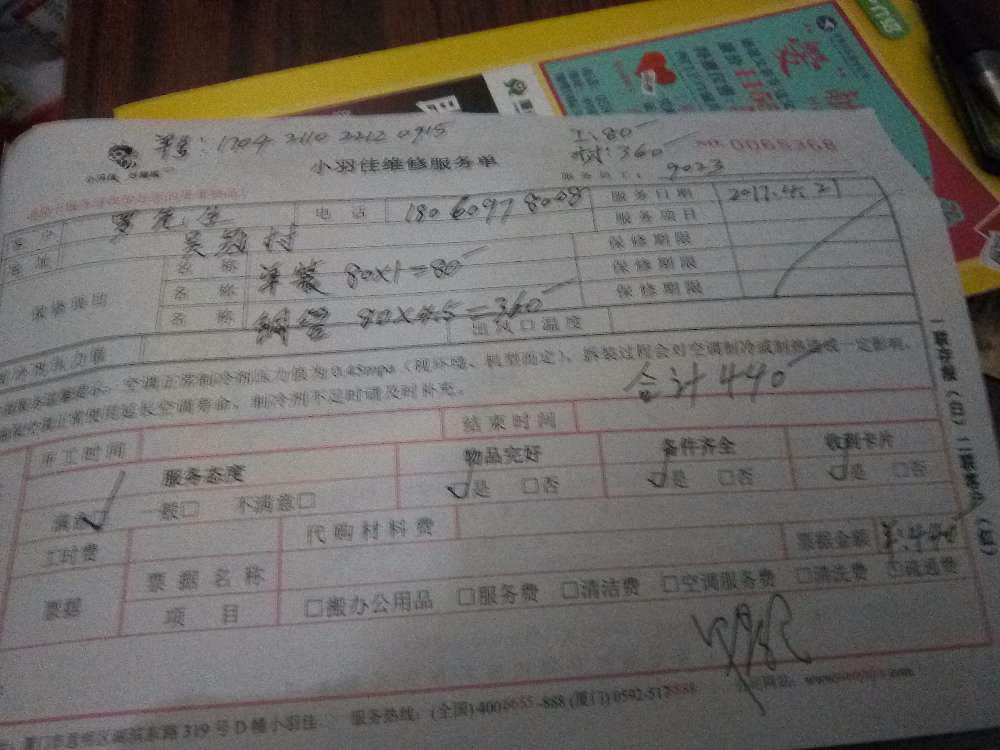 单号:1704 2110 2212 0915
工:80
材:360
小羽佳维修服务单
NO. 0065368
服务员工: 9023
客户 先生 电话 180 6097 8008 服务日期 2017.4.21
地址 吴 村 服务项目
名称 羊装 80×1=80 保修期限
保修项目 名称 保修期限
名称 铜管 80×4.5=360 保修期限
出风口温度
空调正常制冷剂压力值为0.45mpa(视环境、机型而定)、拆装过程会对空调制冷或制热造成一定影响,
延长空调寿命,制冷剂不足时请及时补充。
合计440
开工时间 结束时间
服务态度 物品完好 备件齐全 收到卡片
满意☑ 一般□ 不满意□ ☑是 □否 ☑是 □否 ☑是 □否
工时费 代购材料费 票据金额 ¥:440
票据 票据名称
项目 □搬办公用品 □服务费 □清洁费 □空调服务费 □清洗费 □疏通费
一联存根(白)二联客户(红)
319号D幢小羽佳 服务热线:(全国)4006655-888 (厦门)0592-5178888